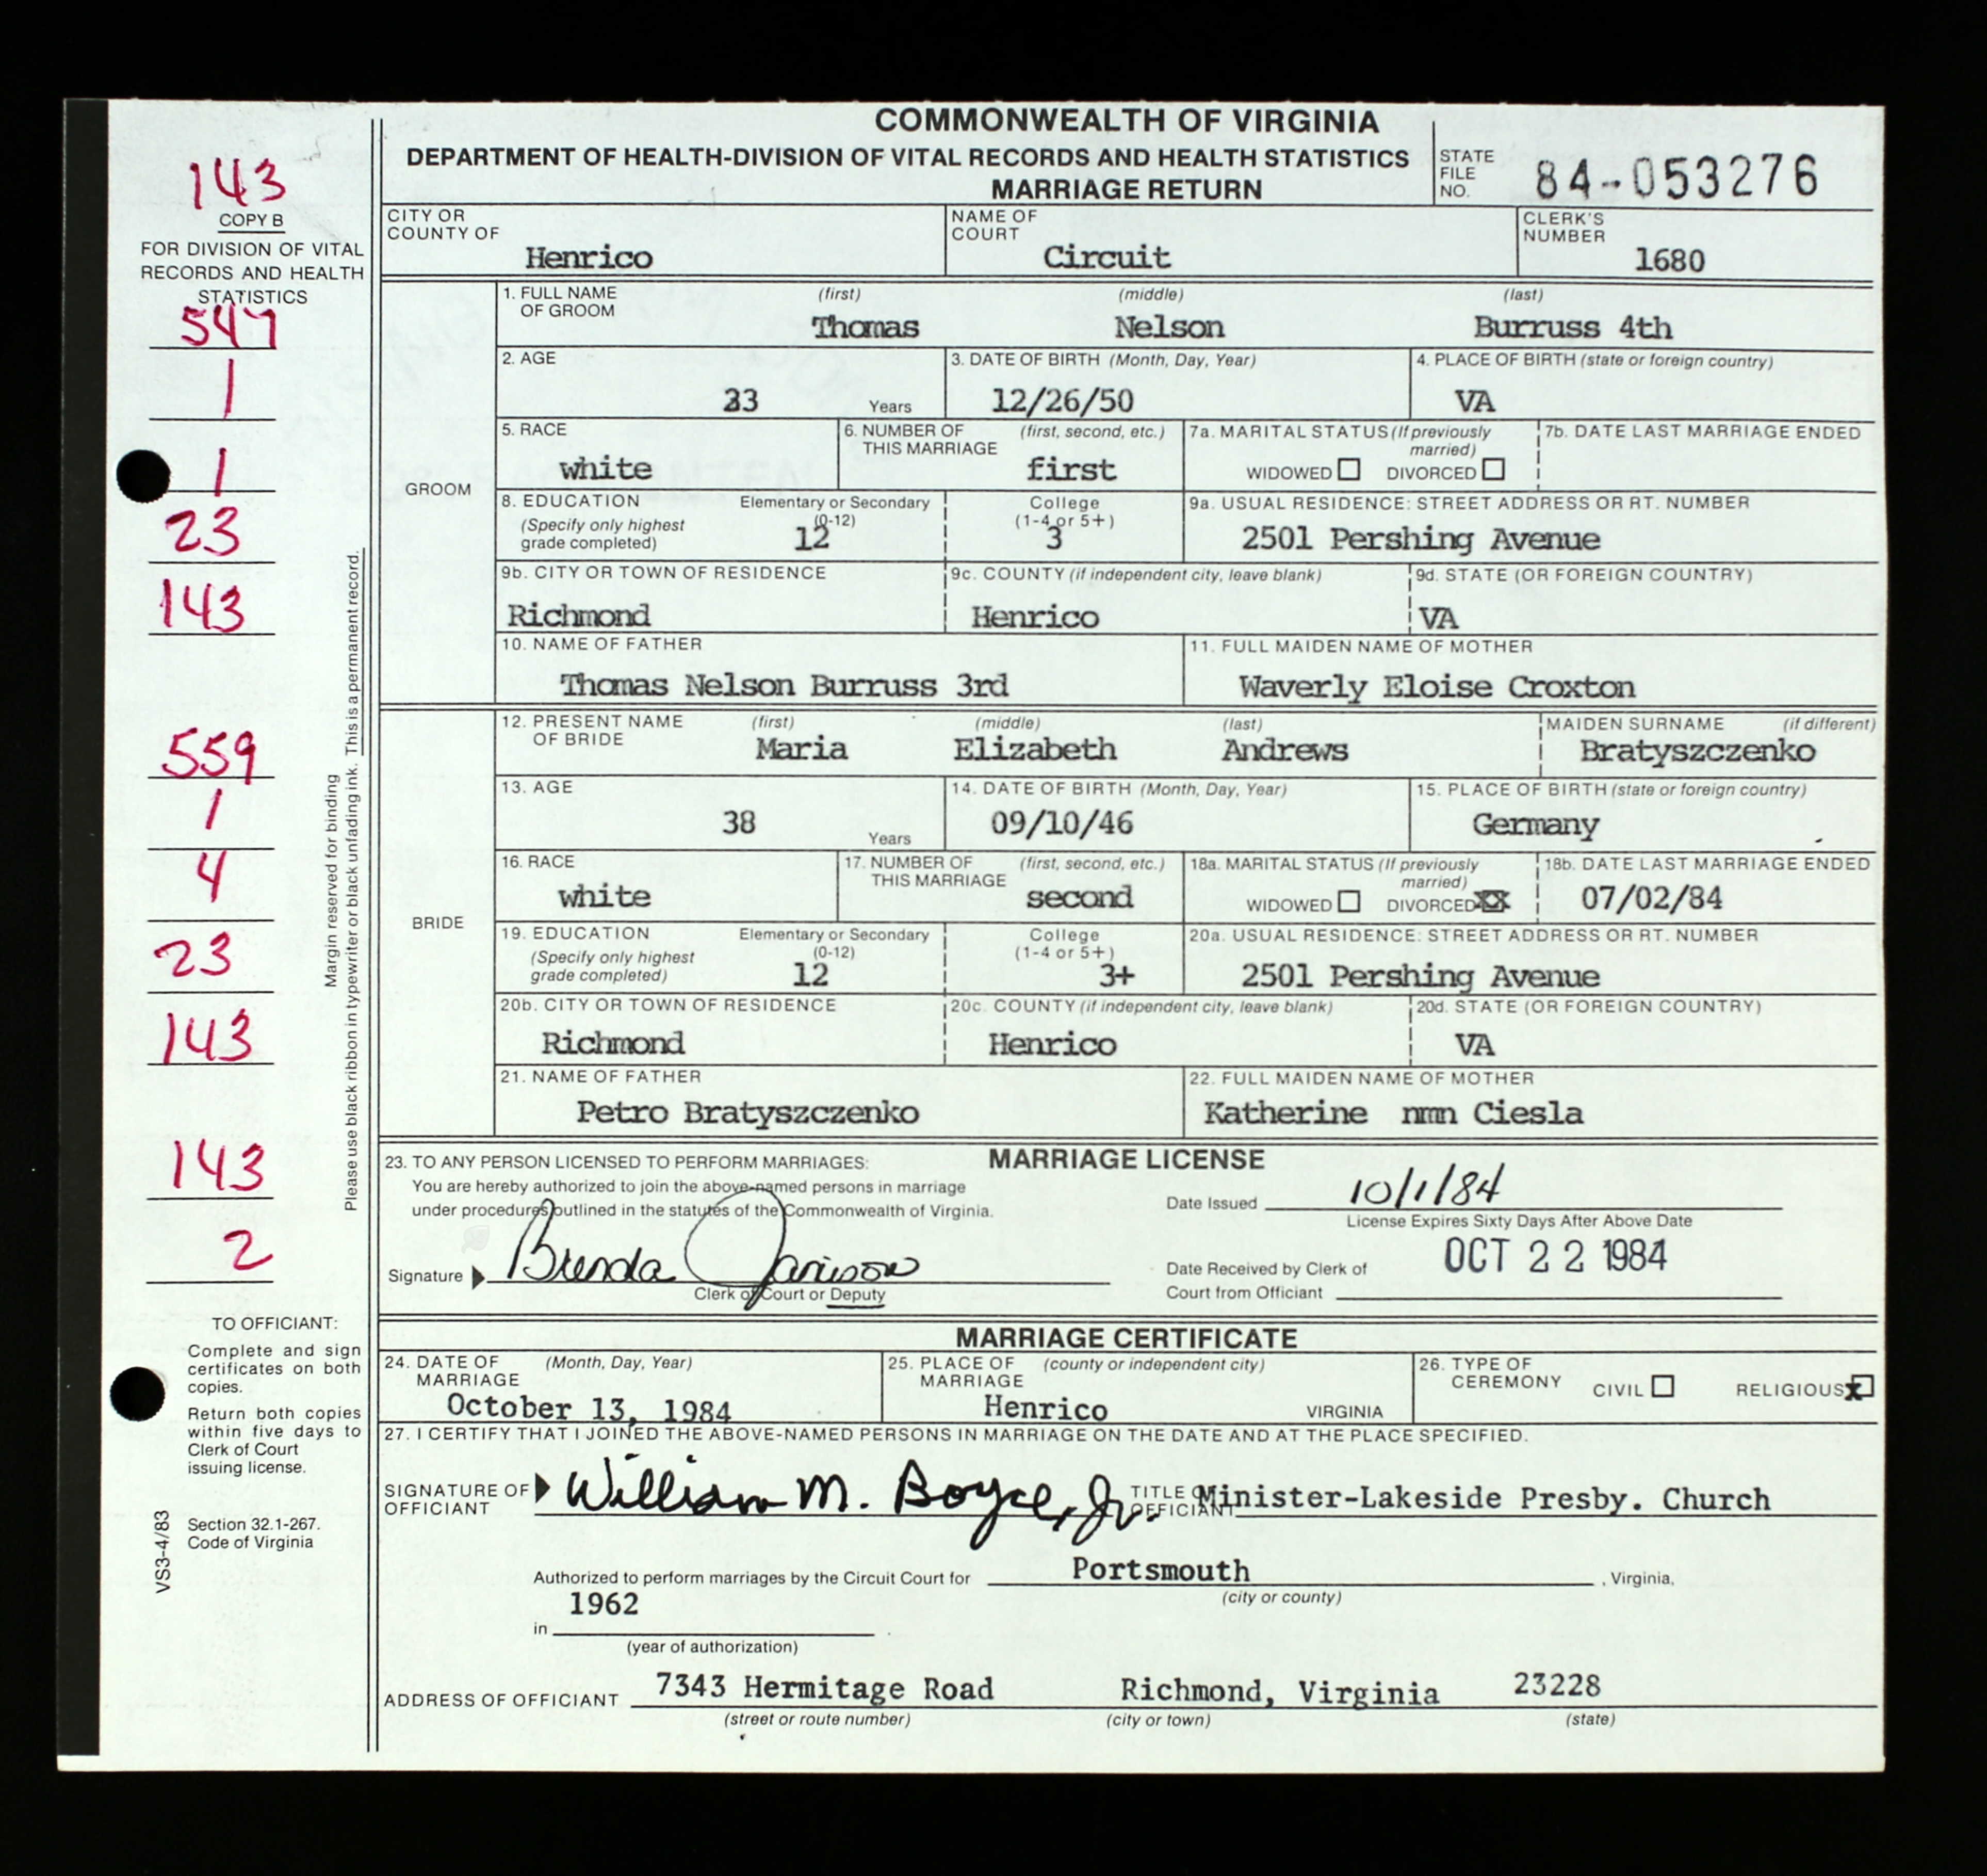 COMMONWEALTH OF VIRGINIA
DEPARTMENT OF HEALTH-DIVISION OF VITAL RECORDS AND HEALTH STATISTICS
MARRIAGE RETURN
STATE FILE NO. 84-053276
143
COPY B
FOR DIVISION OF VITAL
RECORDS AND HEALTH
STATISTICS
547
1
1
23
143
559
1
4
23
143
143
2
Margin reserved for binding
Please use black ribbon in typewriter or black unfading ink. This is a permanent record.
TO OFFICIANT:
Complete and sign
certificates on both
copies.
Return both copies
within five days to
Clerk of Court
issuing license.
Section 32.1-267.
Code of Virginia
VS3-4/83
CITY OR COUNTY OF Henrico
NAME OF COURT Circuit
CLERK'S NUMBER 1680
GROOM
1. FULL NAME OF GROOM (first) (middle) (last)
Thomas Nelson Burruss 4th
2. AGE 33 Years
3. DATE OF BIRTH (Month, Day, Year) 12/26/50
4. PLACE OF BIRTH (state or foreign country) VA
5. RACE white
6. NUMBER OF THIS MARRIAGE (first, second, etc.) first
7a. MARITAL STATUS (If previously married) WIDOWED DIVORCED
7b. DATE LAST MARRIAGE ENDED
8. EDUCATION (Specify only highest grade completed)
Elementary or Secondary (0-12) 12
College (1-4 or 5+) 3
9a. USUAL RESIDENCE: STREET ADDRESS OR RT. NUMBER
2501 Pershing Avenue
9b. CITY OR TOWN OF RESIDENCE Richmond
9c. COUNTY (if independent city, leave blank) Henrico
9d. STATE (OR FOREIGN COUNTRY) VA
10. NAME OF FATHER Thomas Nelson Burruss 3rd
11. FULL MAIDEN NAME OF MOTHER Waverly Eloise Croxton
BRIDE
12. PRESENT NAME OF BRIDE (first) (middle) (last) MAIDEN SURNAME (if different)
Maria Elizabeth Andrews Bratyszczenko
13. AGE 38 Years
14. DATE OF BIRTH (Month, Day, Year) 09/10/46
15. PLACE OF BIRTH (state or foreign country) Germany
16. RACE white
17. NUMBER OF THIS MARRIAGE (first, second, etc.) second
18a. MARITAL STATUS (If previously married) WIDOWED DIVORCED XX
18b. DATE LAST MARRIAGE ENDED 07/02/84
19. EDUCATION (Specify only highest grade completed)
Elementary or Secondary (0-12) 12
College (1-4 or 5+) 3+
20a. USUAL RESIDENCE: STREET ADDRESS OR RT. NUMBER
2501 Pershing Avenue
20b. CITY OR TOWN OF RESIDENCE Richmond
20c. COUNTY (if independent city, leave blank) Henrico
20d. STATE (OR FOREIGN COUNTRY) VA
21. NAME OF FATHER Petro Bratyszczenko
22. FULL MAIDEN NAME OF MOTHER Katherine nmn Ciesla
23. TO ANY PERSON LICENSED TO PERFORM MARRIAGES: MARRIAGE LICENSE
You are hereby authorized to join the above-named persons in marriage
under procedures outlined in the statutes of the Commonwealth of Virginia.
Date Issued 10/1/84
License Expires Sixty Days After Above Date
Signature Brenda Jamison
Clerk of Court or Deputy
Date Received by Clerk of
Court from Officiant OCT 22 1984
MARRIAGE CERTIFICATE
24. DATE OF MARRIAGE (Month, Day, Year) October 13, 1984
25. PLACE OF MARRIAGE (county or independent city) Henrico VIRGINIA
26. TYPE OF CEREMONY CIVIL RELIGIOUS X
27. I CERTIFY THAT I JOINED THE ABOVE-NAMED PERSONS IN MARRIAGE ON THE DATE AND AT THE PLACE SPECIFIED.
SIGNATURE OF OFFICIANT William M. Boyce, Jr.
TITLE OF OFFICIANT Minister-Lakeside Presby. Church
Authorized to perform marriages by the Circuit Court for Portsmouth , Virginia,
(city or county)
in 1962
(year of authorization)
ADDRESS OF OFFICIANT 7343 Hermitage Road Richmond, Virginia 23228
(street or route number) (city or town) (state)